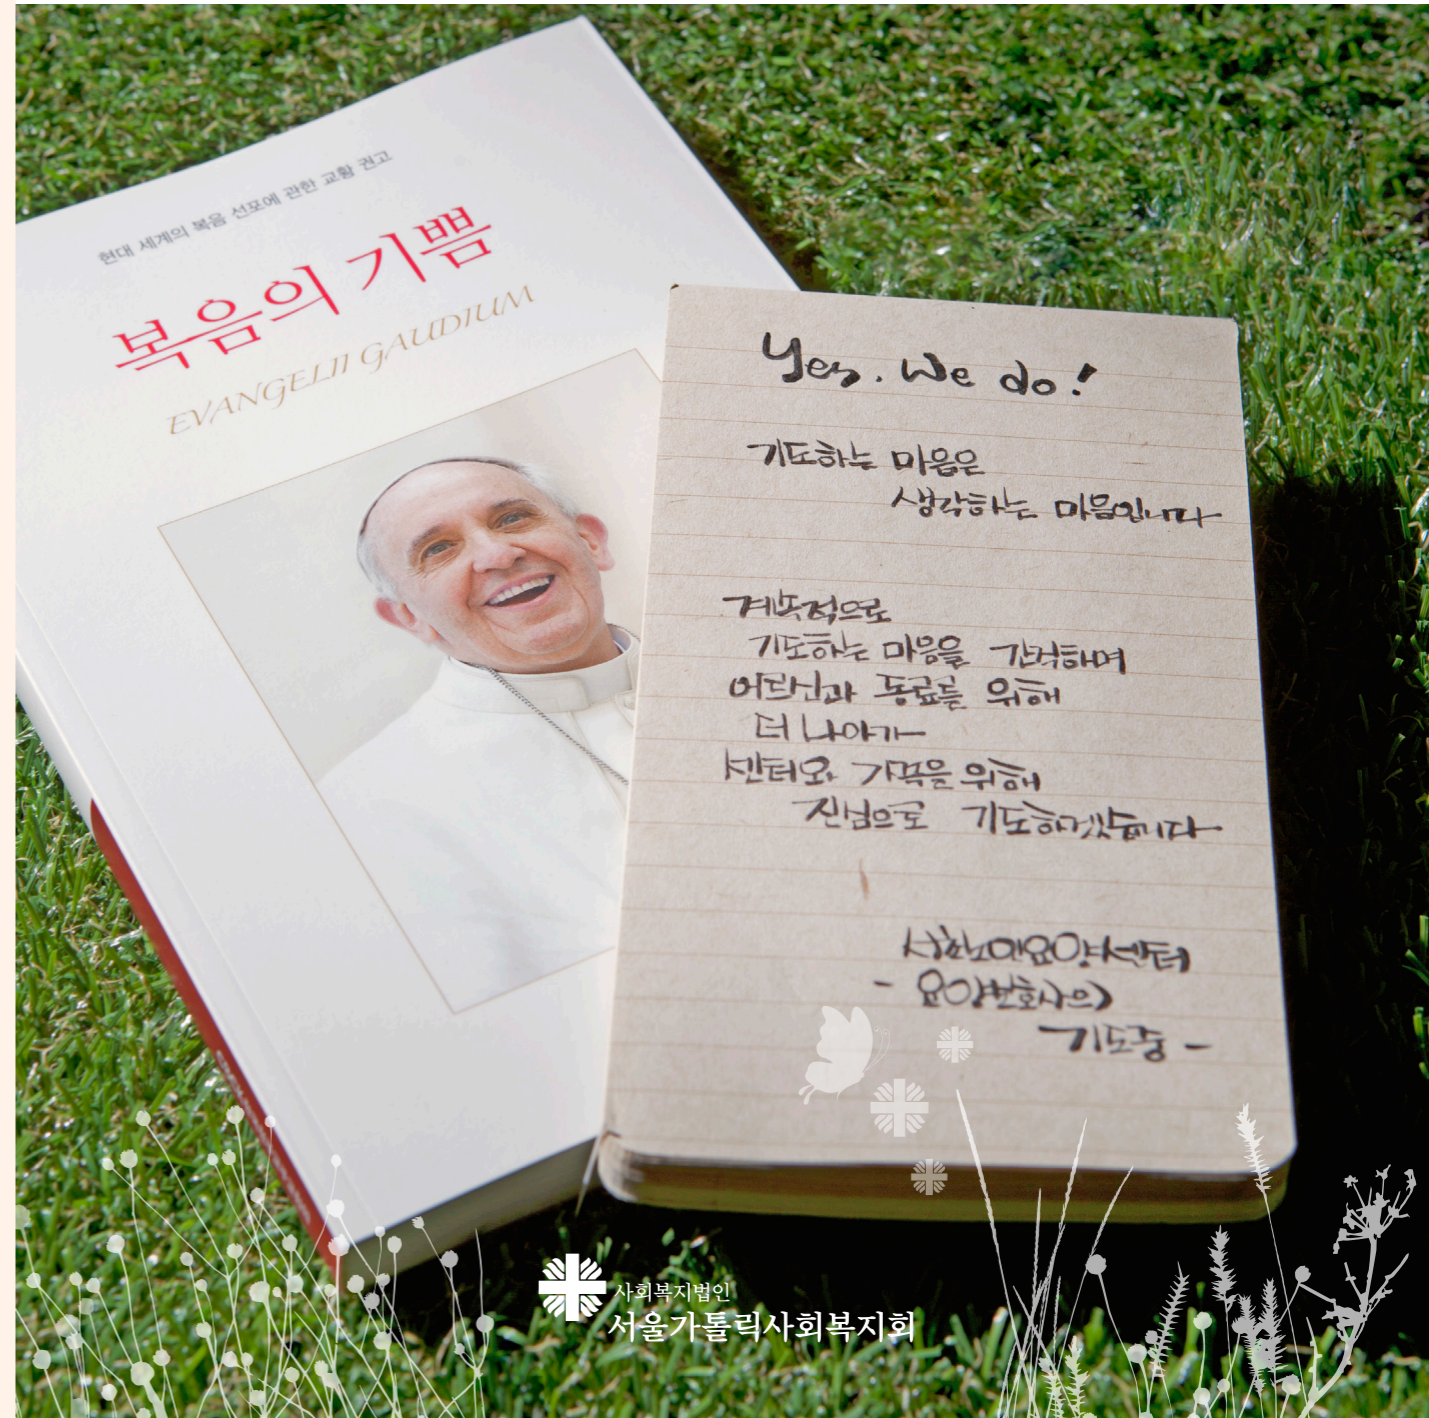 현대 세계의 복음 선포에 관한 교황 권고
복음의 기쁨
EVANGELII GAUDIUM
Yes. We do!
기도하는 마음은
생각하는 마음입니다
계속적으로
기도하는 마음을 간직하며
어르신과 동료를 위해
더 나아가
센터와 가족을 위해
진심으로 기도하겠습니다
요양센터
- 요양보호사의
기도중 -
사회복지법인
서울가톨릭사회복지회